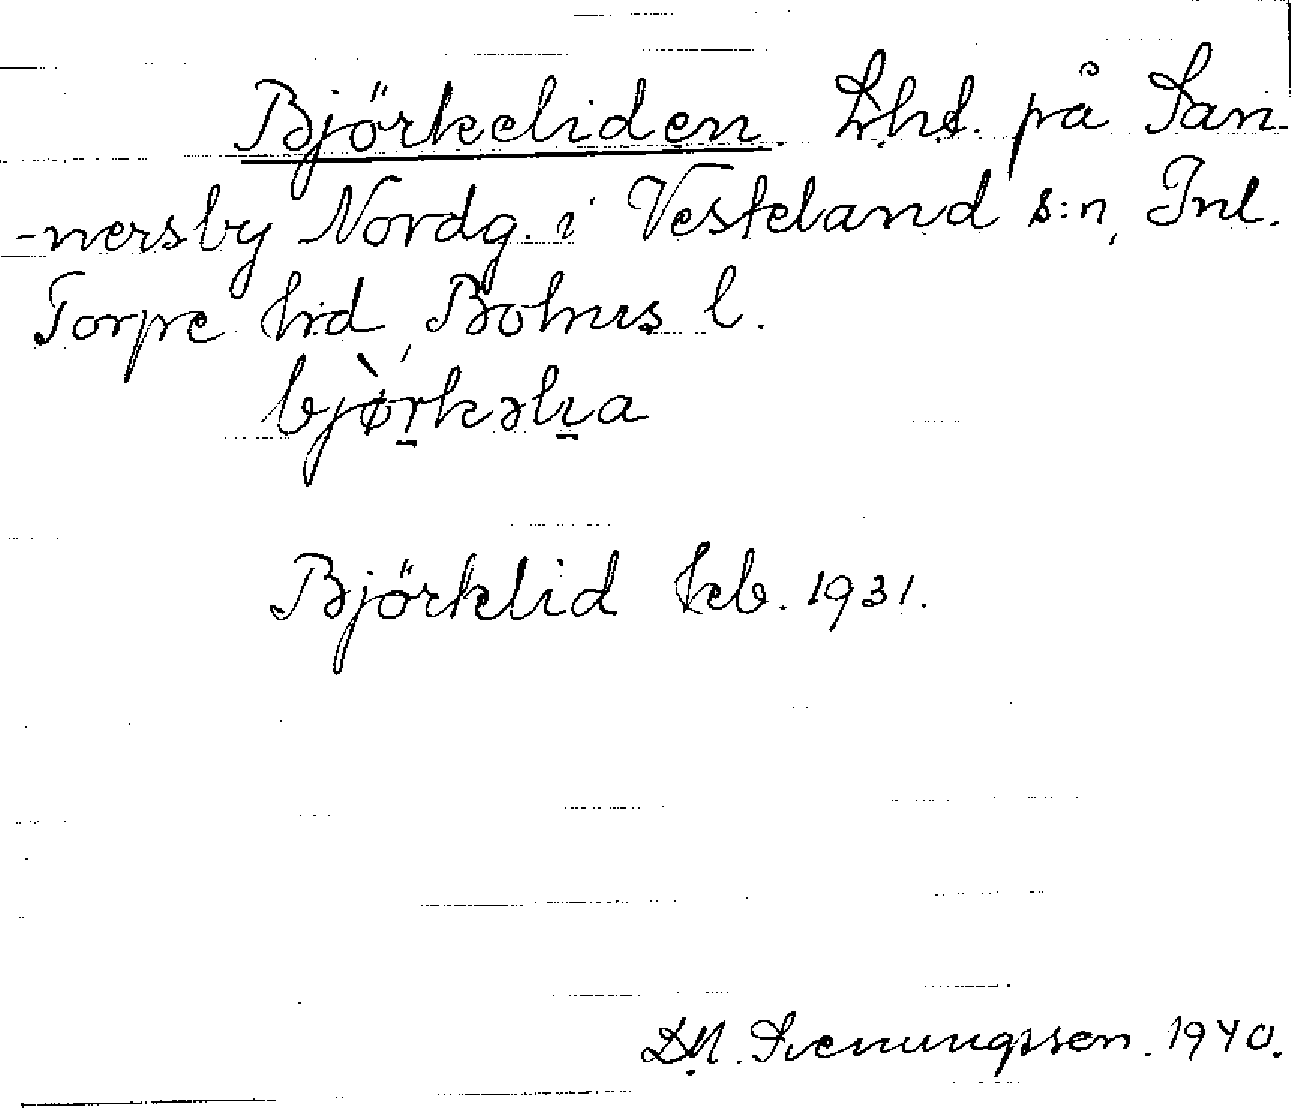 Björkeliden. Lht. på San-
-nersby Nordg. i Vesteland s:n, Inl.
Torpe hd, Bohus l.
bjø̀rkəlıa
Björklid kb. 1931.
D.M. Svenungsson. 1940.